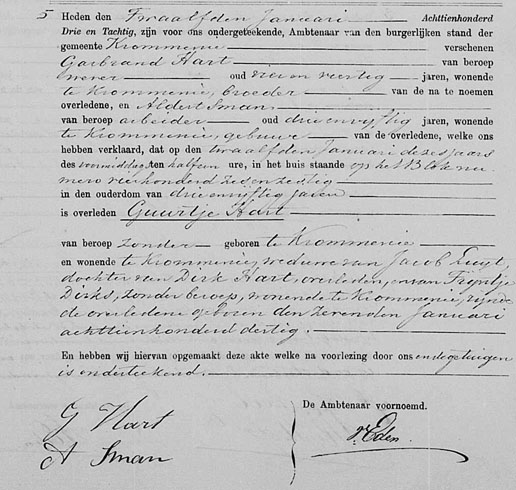 5 Heden den Twaalfden Januari Achttienhonderd
Drie en Tachtig, zijn voor ons ondergeteekende, Ambtenaar van den burgerlijken stand der
gemeente Krommenie verschenen
Garbrand Hart van beroep
oud veertig jaren, wonende
te Krommenie, broeder van de na te noemen
overledene, en Aldert Sman
van beroep arbeider oud drie en vijftig jaren, wonende
te Krommenie, gebuur van de overledene, welke ons
hebben verklaard, dat op den twaalfden Januari dezes jaars
des voormiddags ten half een ure, in het huis staande op het Blok nu
mero vierhonderd zes en zestig
in den ouderdom van drie en vijftig jaren
is overleden Guurtje Hart
van beroep zonder geboren te Krommenie
en wonende te Krommenie, weduwe van Jacob Luijt,
dochter van Dirk Hart, overleden, en van Trijntje
Dirks, zonder beroep, wonende te Krommenie, zijnde
de overledene geboren den zevenden Januari
achttienhonderd dertig.
En hebben wij hiervan opgemaakt deze akte welke na voorlezing door ons en de getuigen
is onderteekend.
De Ambtenaar voornoemd.
G Hart
A Sman